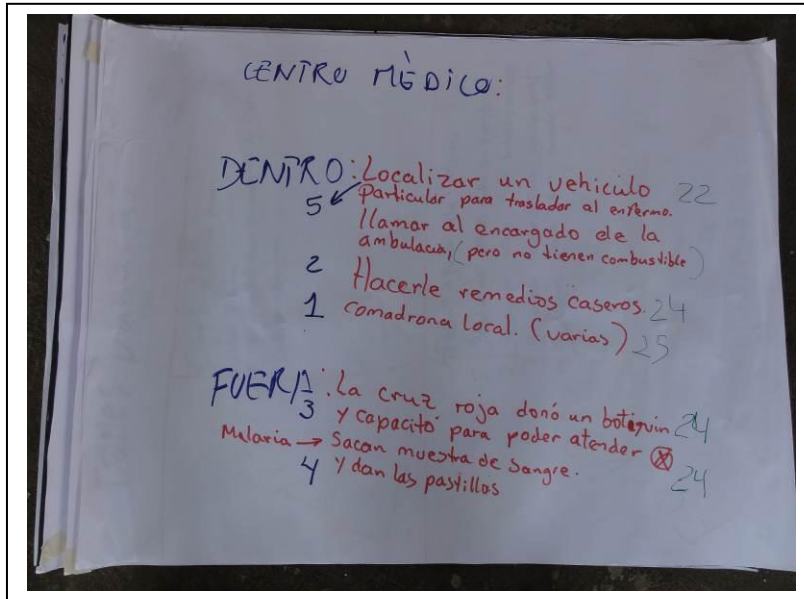 CENTRO MÈDICO:
DENTRO: Localizar un vehiculo 22
5 particular para trasladar al enfermo.
llamar al encargado de la
ambulacia, (pero no tienen combustible)
2 Hacerle remedios caseros. 24
1 comadrona local. (varias) 25
FUERA: La cruz roja donó un botiquin 24
3 y capacitó para poder atender
Malaria → Sacan muestra de sangre.
4 y dan las pastillas 24